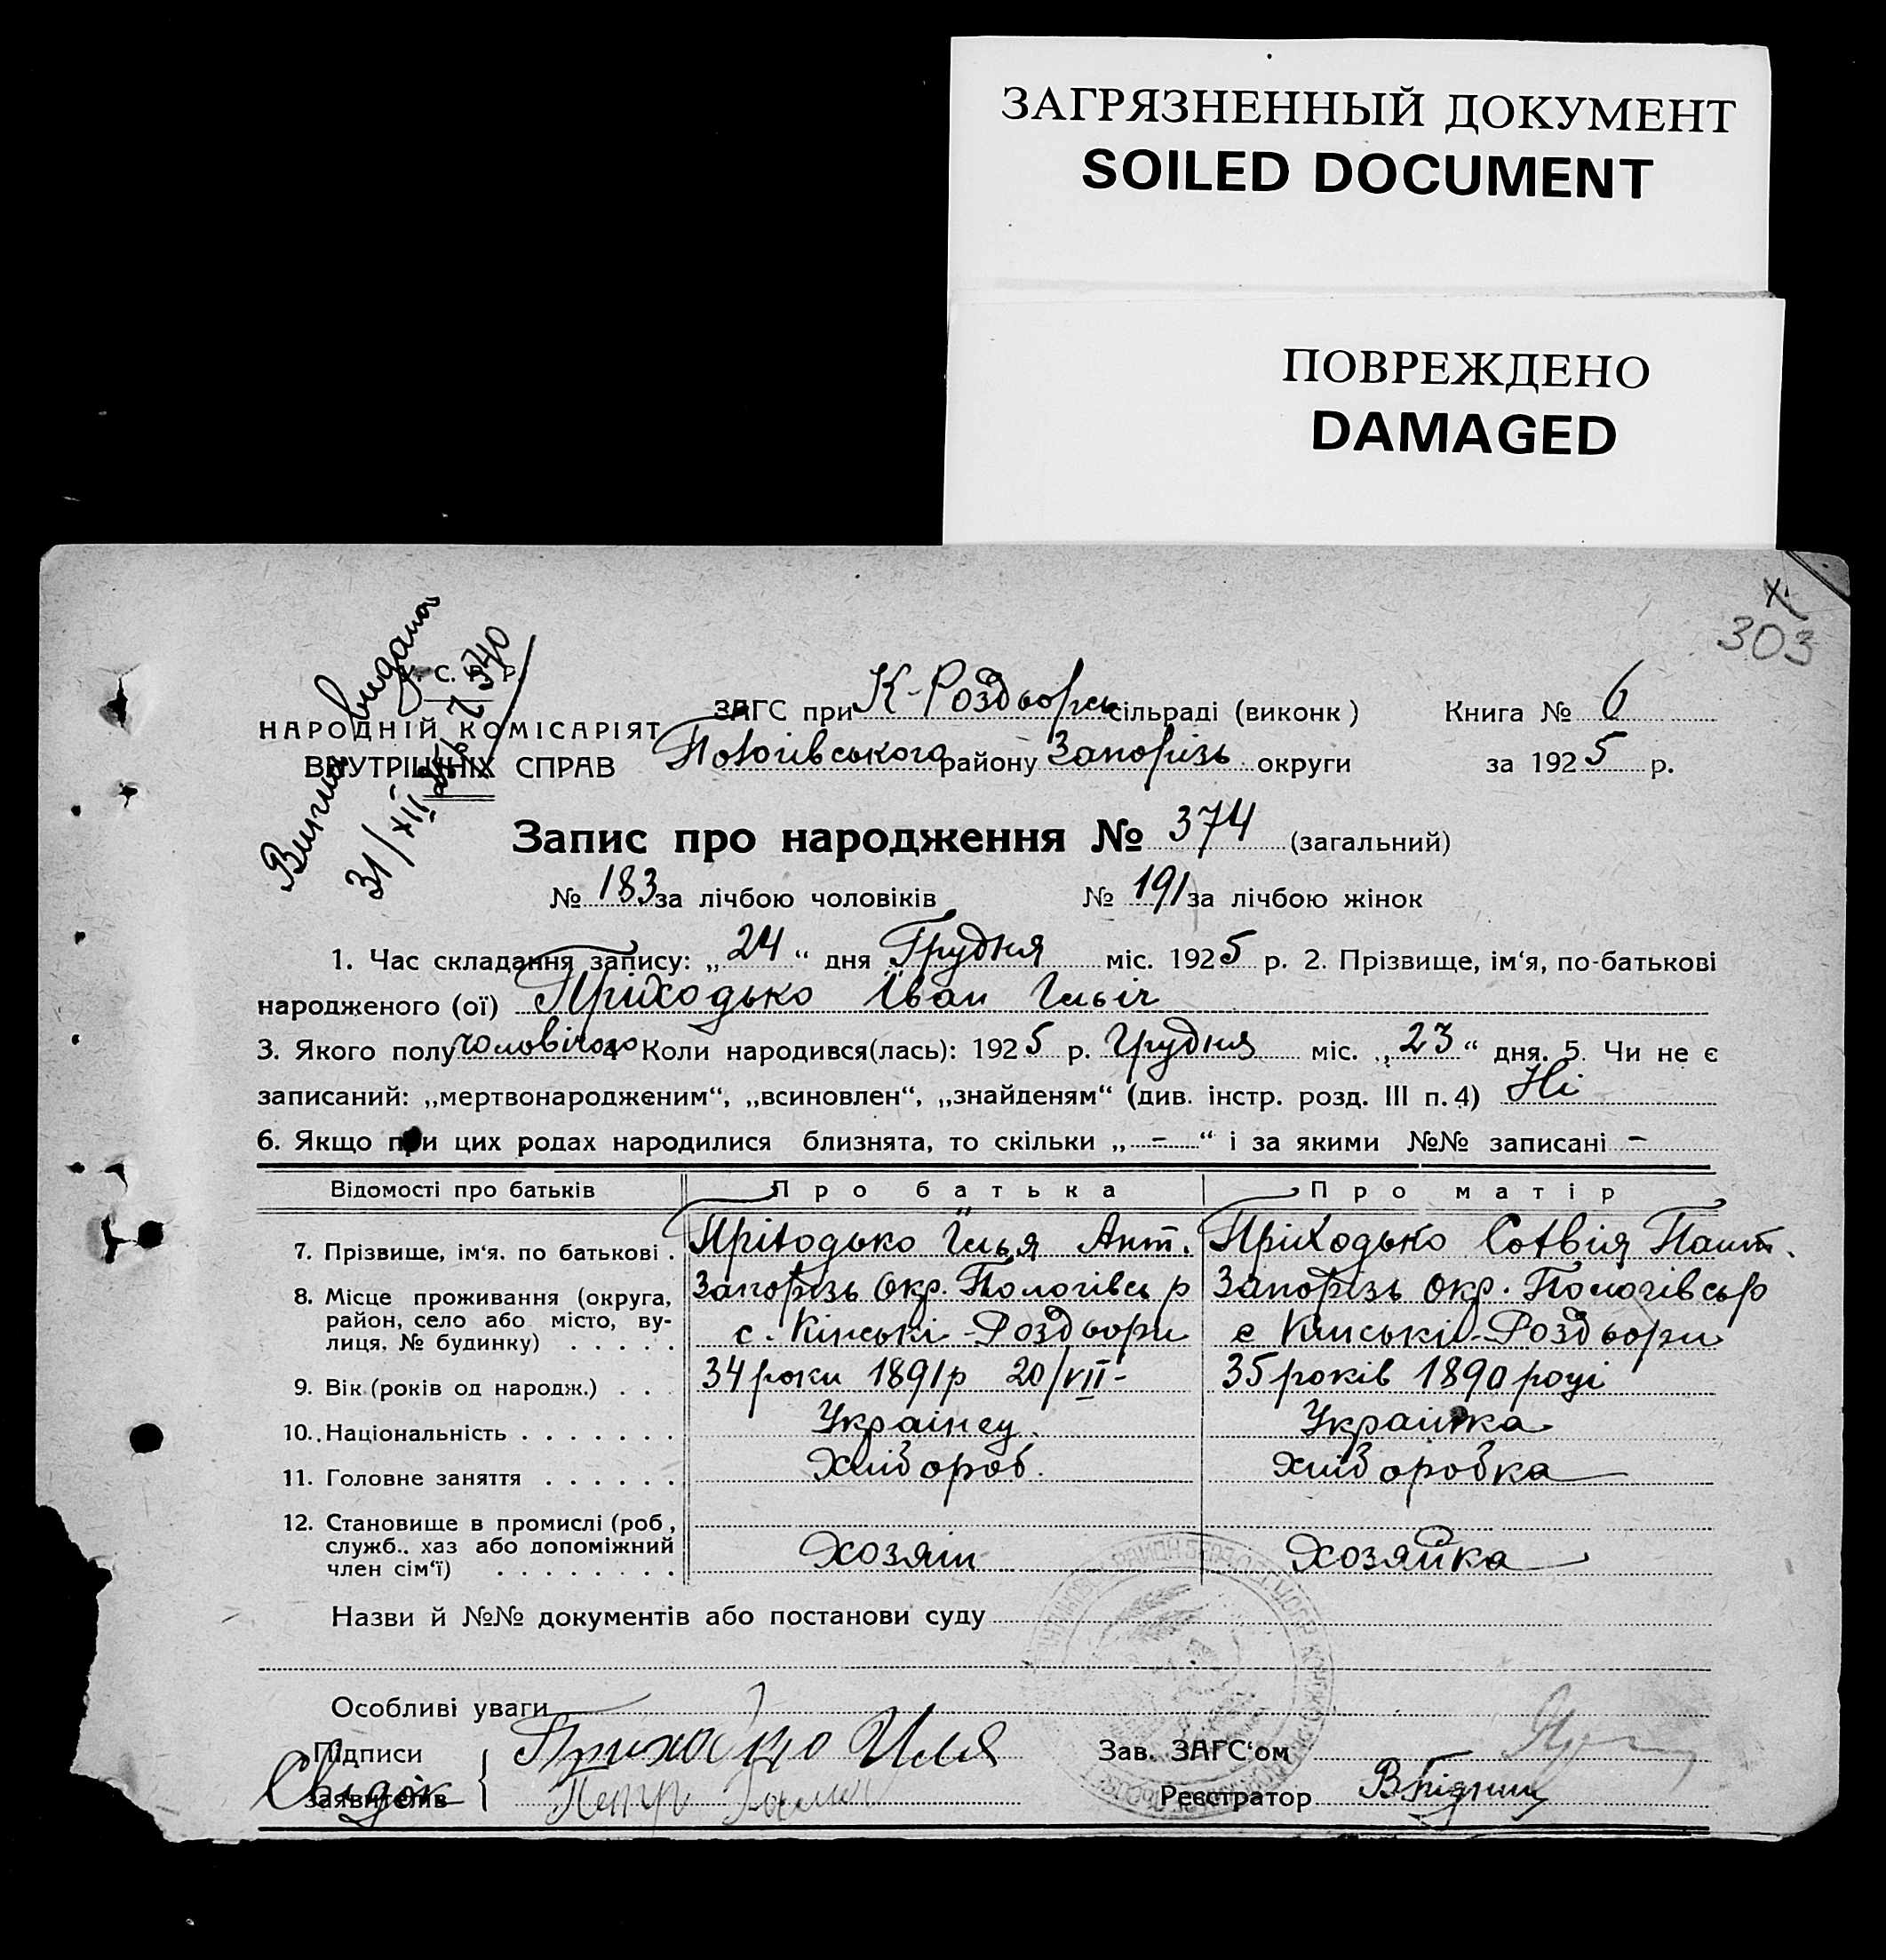 ЗАГРЯЗНЕННЫЙ ДОКУМЕНТ
SOILED DOCUMENT
ПОВРЕЖДЕНО
DAMAGED
303
У. С. Р. Р.
НАРОДНІЙ КОМІСАРІЯТ
ВНУТРІШНІХ СПРАВ
видана
31/XII
ЗАГС при К-Роздорсь сільраді (виконк) Книга № 6
Пологівського району Запорізь округи за 1925 р.
Запис про народження № 374 (загальний)
№ 183 за лічбою чоловіків № 191 за лічбою жінок
1. Час складання запису: „24“ дня Грудня міс. 1925 р. 2. Прізвище, ім‘я, по-батькові
народженого (ої) Приходько Іван Ільіч
3. Якого полу чоловічого 4 Коли народився(лась): 1925 р. Грудня міс. „23“ дня. 5. Чи не є
записаний: „мертвонародженим“, „всиновлен“, „знайденям“ (див. інстр. розд. III п. 4) Ні
6. Якщо при цих родах народилися близнята, то скільки „-“ і за якими №№ записані -
Відомості про батьків Про батька Про матір
7. Прізвище, ім‘я. по батькові . Пріходько Ілья Ант. Приходько Пант.
8. Місце проживання (округа, Запорізь Окр. Пологівсь р Запорізь Окр. Пологівсь р
район, село або місто, ву- с. Кінські-Роздори с Кінські-Роздори
лиця, № будинку) . . . . .
9. Вік (років од народж.) . . . 34 роки 1891 р 20/VII- 35 років 1890 році
10. Національність . . . . . . . Українец. Украінка
11. Головне заняття . . . . . . Хлібороб. Хліборобка
12. Становище в промислі (роб,
служб.. хаз або допоміжний Хозяін Хозяйка
член сім‘ї) . . . . . . . .
Назви й №№ документів або постанови суду
Особливі уваги
Підписи Приходько Илля Зав. ЗАГС‘ом
Свідок
заявителів Петро Реєстратор